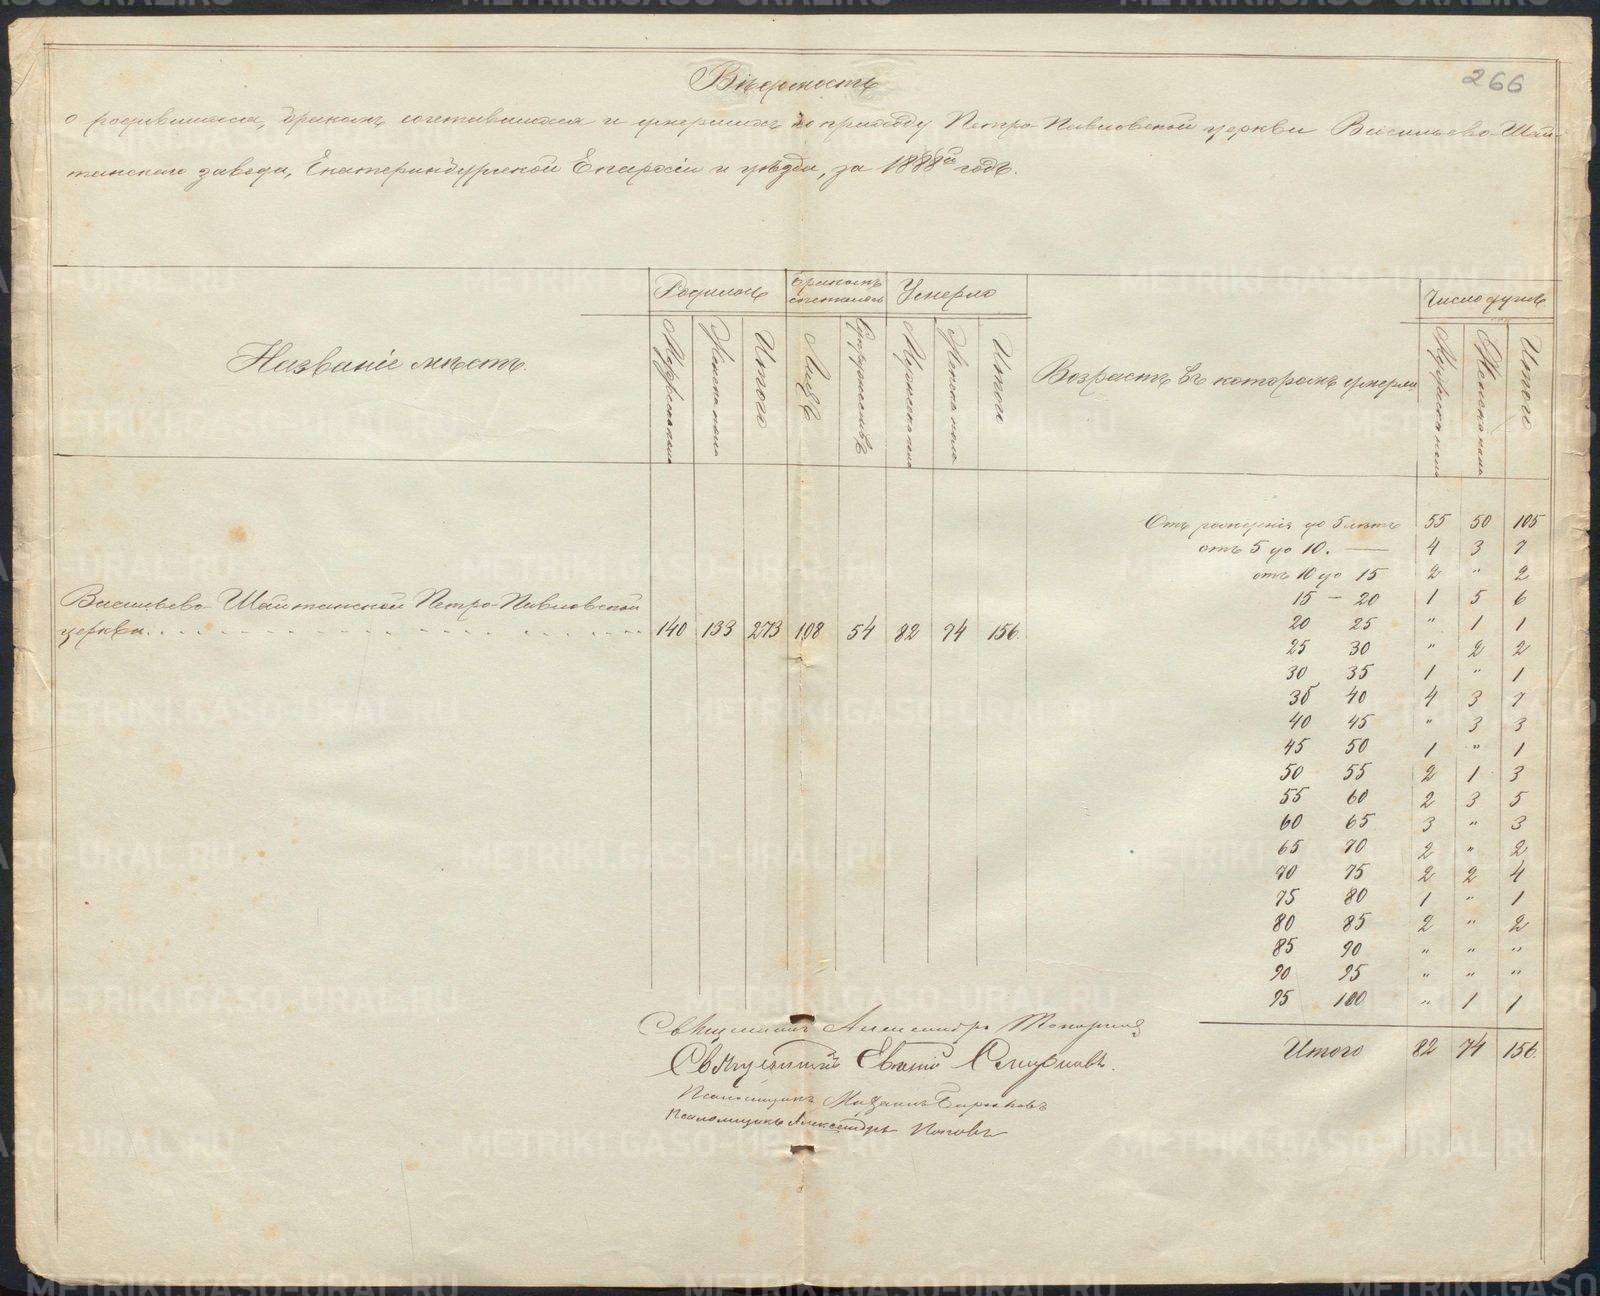 266
Вѣдомость
о родившихся, бракомъ сочетавшихся и умершихъ по приходу Петро-Павловской церкви Васильево-Шай-
танскаго завода, Екатеринбургской Епархіи и уѣзда, за 1888й годъ.
Названіе мѣстъ.
Родилось
Мужеска пола
Женска пола
Итого
Бракомъ сочеталось
Лицъ
Супружествъ
Умерло
Мужеска пола
Женска пола
Итого
Возрастъ въ которомъ умерли
Число душъ
Мужеска пола
Женска пола
Итого
Васильево-Шайтанской Петро-Павловской
церкви. 140 133 273 108 54 82 74 156.
Отъ рожденія до 5 лѣтъ 55 50 105
отъ 5 до 10. — 4 3 7
отъ 10 до 15 2 " 2
15 — 20 1 5 6
20 25 " 1 1
25 30 " 2 2
30 35 1 " 1
35 40 4 3 7
40 45 " 3 3
45 50 1 " 1
50 55 2 1 3
55 60 2 3 5
60 65 3 " 3
65 70 2 " 2
70 75 2 2 4
75 80 1 " 1
80 85 2 " 2
85 90 " " "
90 95 " " "
95 100 " 1 1
Итого 82 74 156.
Священникъ Александръ Топорковъ
Священникъ Евгеній Смирновъ.
Псаломщикъ Михаилъ Бирюковъ
Псаломщикъ Александръ Поповъ
METRIKI.GASO-URAL.RU